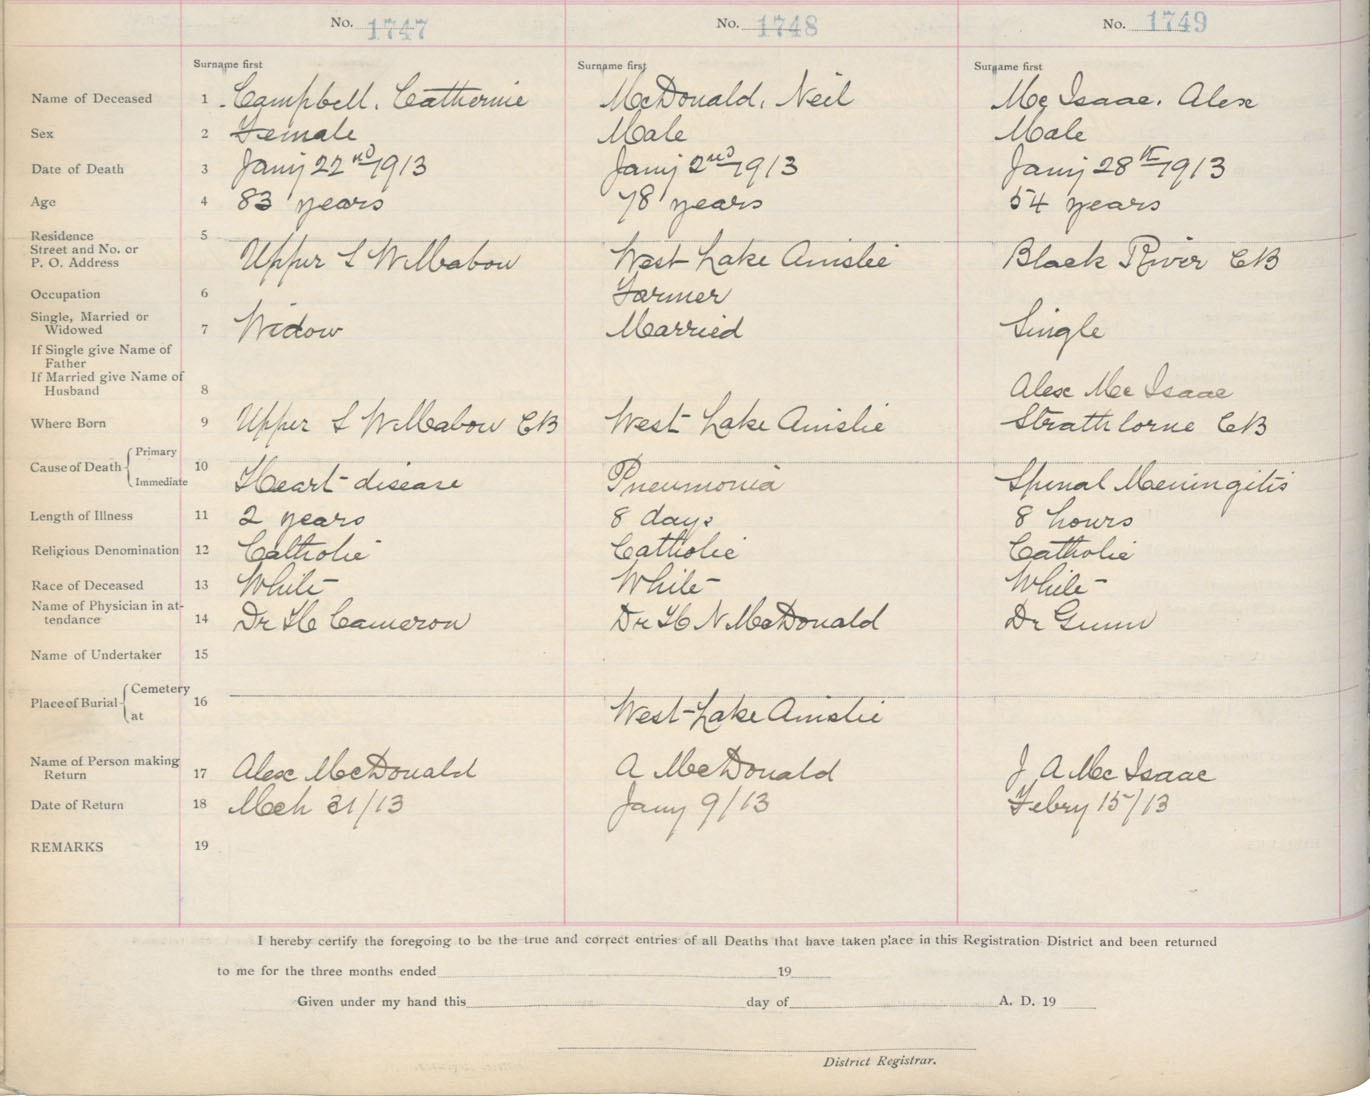 No. 1747 No. 1748 No. 1749
Surname first Surname first Surname first
Name of Deceased 1 Campbell, Catherine McDonald, Neil Mc Isaac, Alex
Sex 2 Female Male Male
Date of Death 3 Jany 22nd 1913 Jany 2nd 1913 Jany 28th 1913
Age 4 83 years 78 years 54 years
Residence 5
Street and No. or
P. O. Address Upper S W Mabou West Lake Ainslie Black River CB
Occupation 6 Farmer
Single, Married or
Widowed 7 Widow Married Single
If Single give Name of
Father
If Married give Name of
Husband 8 Alex Mc Isaac
Where Born 9 Upper S W Mabou CB West Lake Ainslie Strathlorne CB
Cause of Death Primary 10
Immediate Heart disease Pneumonia Spinal Meningitis
Length of Illness 11 2 years 8 days 8 hours
Religious Denomination 12 Catholic Catholic Catholic
Race of Deceased 13 White White White
Name of Physician in at-
tendance 14 Dr H Cameron Dr H N McDonald Dr Gunn
Name of Undertaker 15
Place of Burial Cemetery 16
at West Lake Ainslie
Name of Person making
Return 17 Alex McDonald A McDonald J A Mc Isaac
Date of Return 18 Mch 31/13 Jany 9/13 Febry 15/13
REMARKS 19
I hereby certify the foregoing to be the true and correct entries of all Deaths that have taken place in this Registration District and been returned
to me for the three months ended 19
Given under my hand this day of A. D. 19
District Registrar.